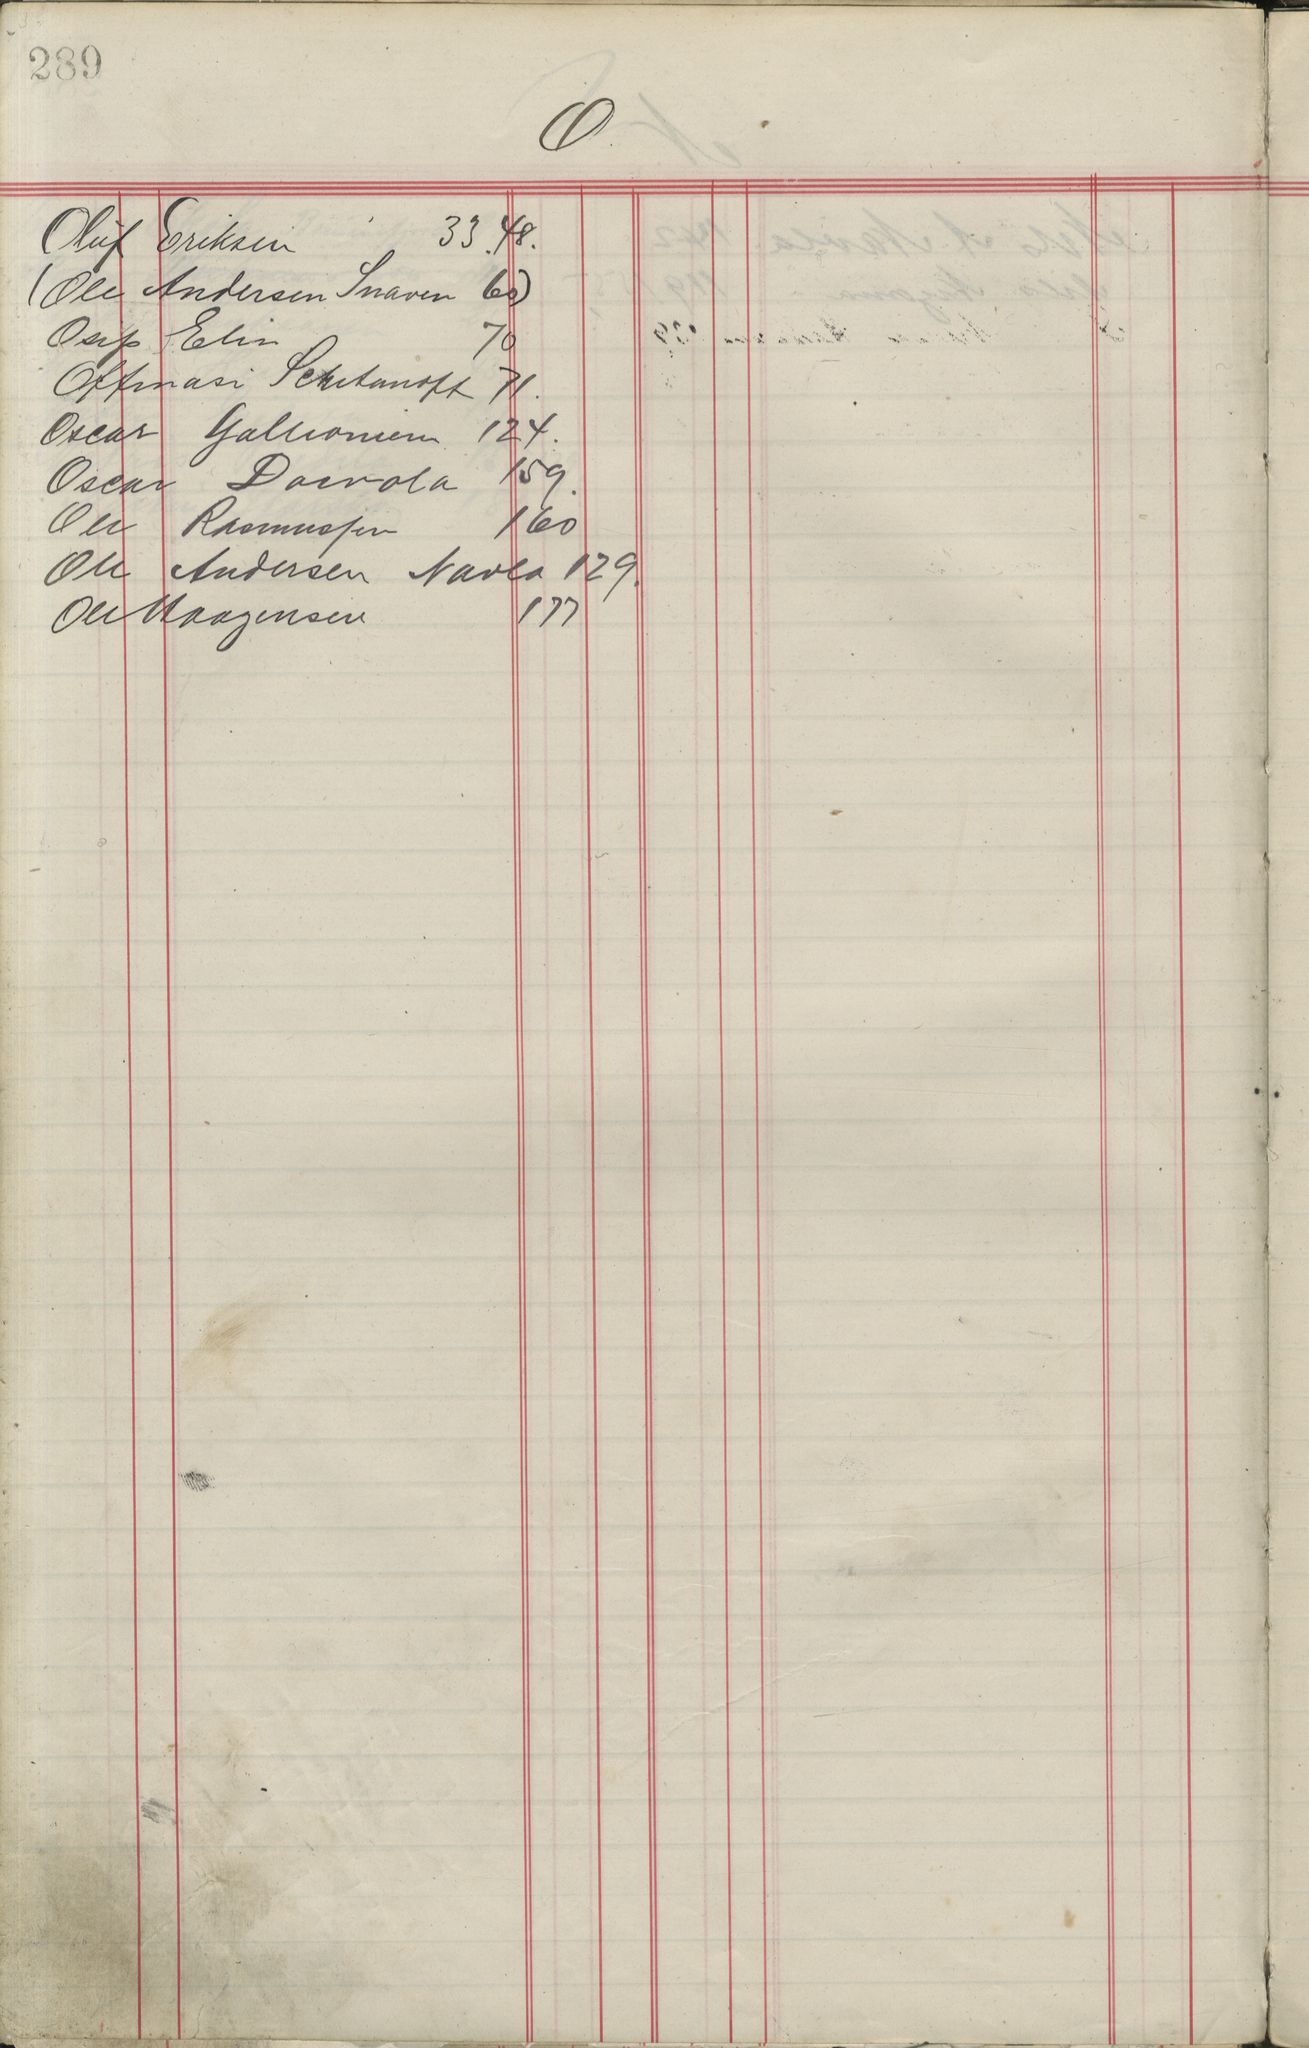 289
O.
Oluf Eriksen 33.48.
(Ole Andersen Snaven 60)
Osip Elin 70
Offinasi Schutanoff 71.
Oscar Gallionen 124.
Oscar Daivola 159.
Ole Rasmussen 160
Ole Andersen Navla 129.
Ole Haagensen 177